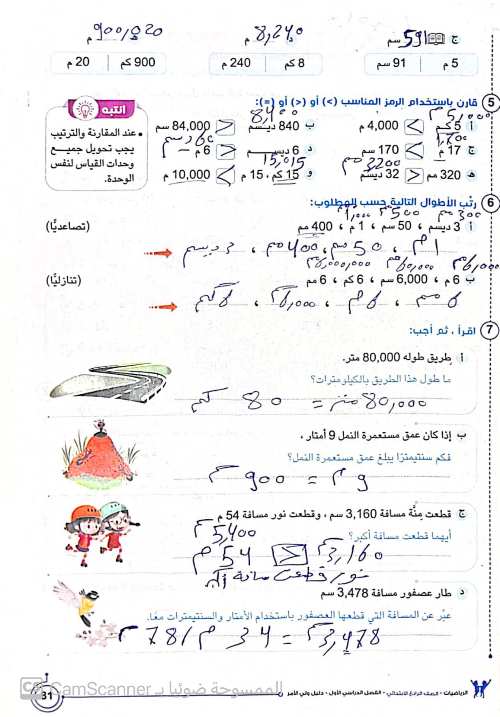 ج 591 سم
8,240 م
900,020 م
5 م | 91 سم
8 كم | 240 م
900 كم | 20 م
5 قارن باستخدام الرمز المناسب (>) أو (<) أو (=):
أ 5 كم 4,000 م
ب 840 ديسم 84,000 سم
ج 17 م 170 سم
د 6 ديسم 6 م
15,015
ه 320 مم 32 ديسم
و 15 كم ، 15 م 10,000 م
انتبه
• عند المقارنة والترتيب
يجب تحويل جميع
وحدات القياس لنفس
الوحدة.
6 رتب الأطوال التالية حسب المطلوب:
أ 3 ديسم ، 50 سم ، 1 م ، 400 مم (تصاعديًا)
ب 6 م ، 6,000 سم ، 6 كم ، 6 مم (تنازليًا)
7 اقرأ ، ثم أجب:
أ طريق طوله 80,000 متر.
ما طول هذا الطريق بالكيلومترات؟
80,000 متر = 80 كم
ب إذا كان عمق مستعمرة النمل 9 أمتار ،
فكم سنتيمترًا يبلغ عمق مستعمرة النمل؟
9 م = 900 سم
ج قطعت منَّة مسافة 3,160 سم ، وقطعت نور مسافة 54 م
أيهما قطعت مسافة أكبر؟
5,400 سم
3,160 سم > 54 م
نور قطعت مسافة أكبر
د طار عصفور مسافة 3,478 سم
عبِّر عن المسافة التي قطعها العصفور باستخدام الأمتار والسنتيمترات معًا.
3,478 سم = 34 م / 78 سم
الرياضيات - الصف الرابع الابتدائي - الفصل الدراسي الأول - دليل ولي الأمر
31
CS CamScanner الممسوحة ضوئيا بـ